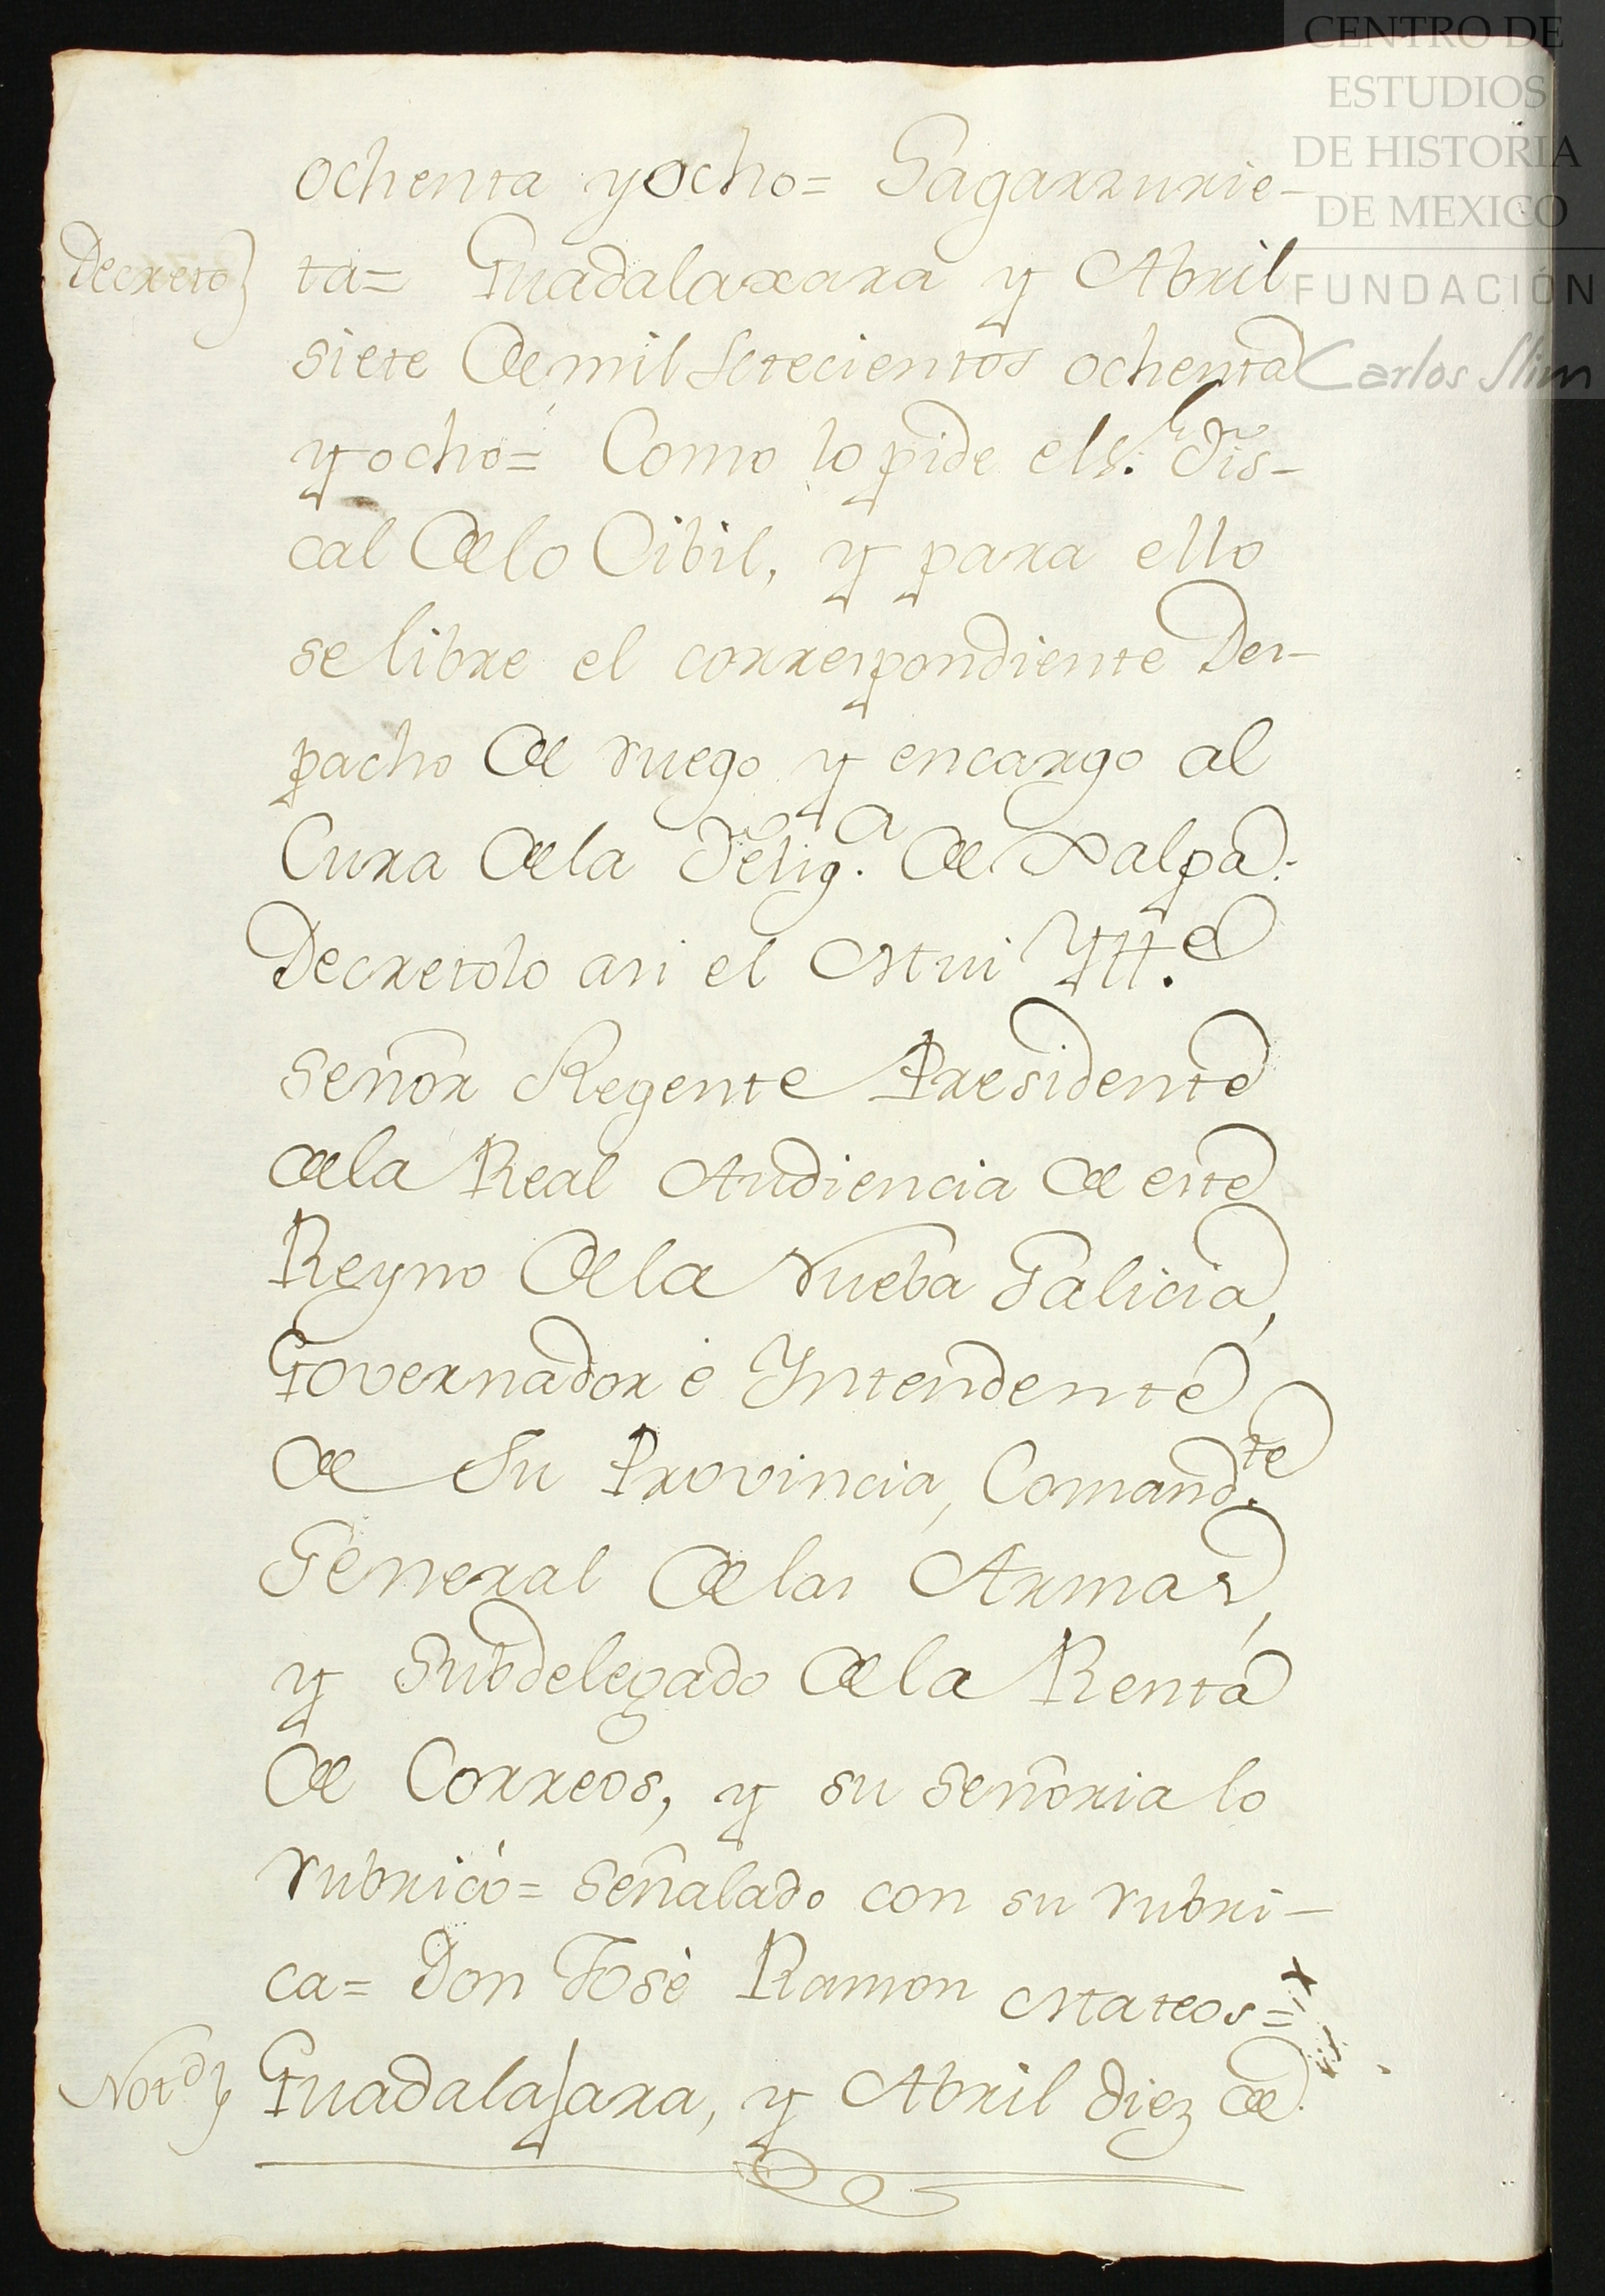 CENTRO DE
ESTUDIOS
DE HISTORIA
DE MEXICO
FUNDACIÓN
Carlos Slim
ochenta y ocho= Sagarzurie-
Decreto} ta= Guadalaxara y Abril
siete de mil setecientos ochenta
y ocho= Como lo pide el s.r Fis-
cal de lo Cibil, y para ello
se libre el correspondiente Des-
pacho de ruego y encargo al
Cura de la Felig.a de Xalpa:
Decretolo asi el Mui Ytt.e
señor Regente Presidente
de la Real Audiencia de este
Reyno de la Nueba Galicia,
Governador è Intendente
de Su Provincia, Comand.te
General de las Armas,
y Subdelegado de la Renta
de Correos, y su señoria lo
rubricó= señalado con su rubri-
ca= Don José Ramon Mateos=
Guadalajara, y Abril diez de